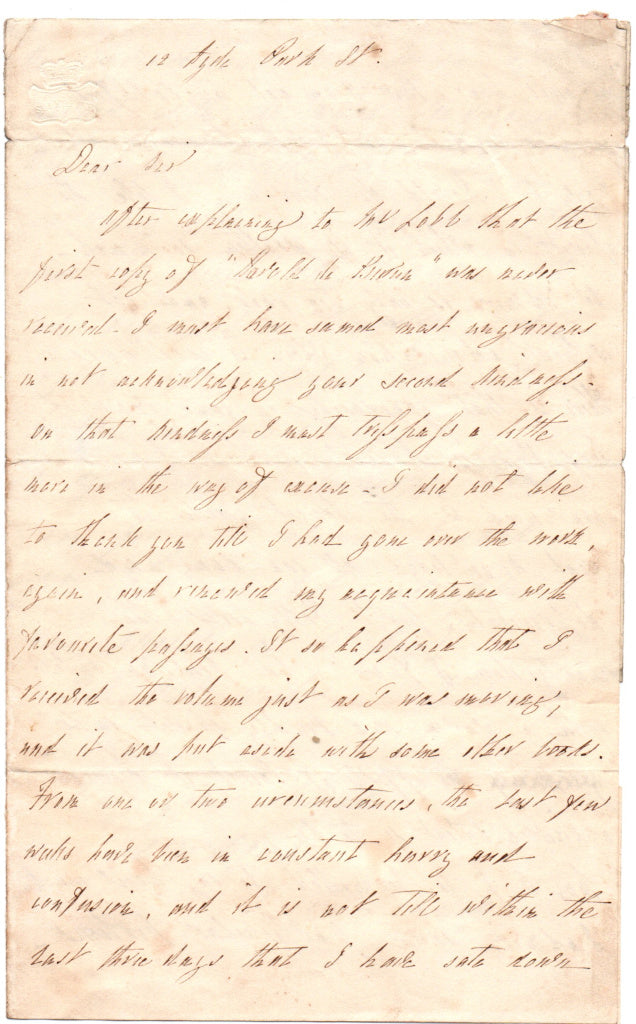 12 Hyde Park St.
Dear Sir
After explaining to Mr Lobb that the
first copy of "Harold de Burun" was never
received - I must have seemed most ungracious
in not acknowledging your second kindness -
on that kindness I must trespass a little
more in the way of excuse - I did not like
to thank you till I had gone over the work,
again, and renewed my acquaintance with
favourite passages. It so happened that I
received the volume just as I was moving,
and it was put aside with some other books.
From one or two circumstances, the last few
weeks have been in constant hurry and
confusion, and it is not till within the
last three days that I have sate down